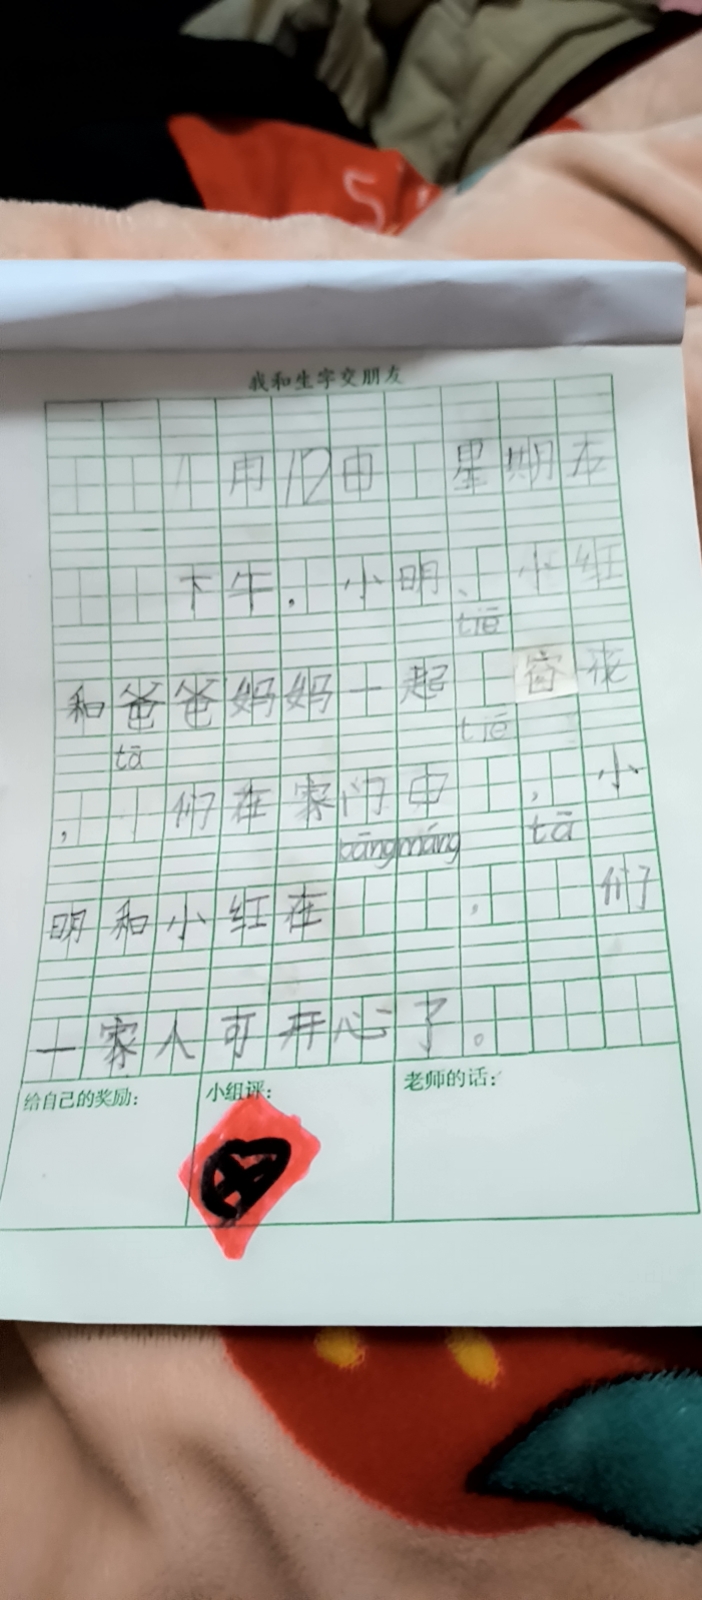 我和生字交朋友
星期
下午，小明、小红
tiē
和爸爸妈妈一起 窗花
tā tiē
，们在家门中，小
bāng máng tā
明和小红在，们
一家人可开心了。
给自己的奖励： 小组评： 老师的话：